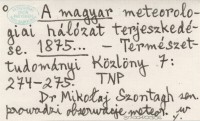 A magyar meteorolo-
giai hálózat terjeszkedé-
se. 1875... - Természet-
tudományi Közlöny 7:
274-275. TNP
Dr Mikołaj Szontagh sen.
prowadzi obserwacje meteor. w